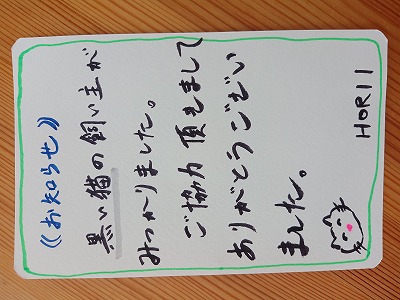 《お知らせ》
黒い猫の飼い主が
みつかりました。
ご協力頂きまして
ありがとうござい
ました。
HORII